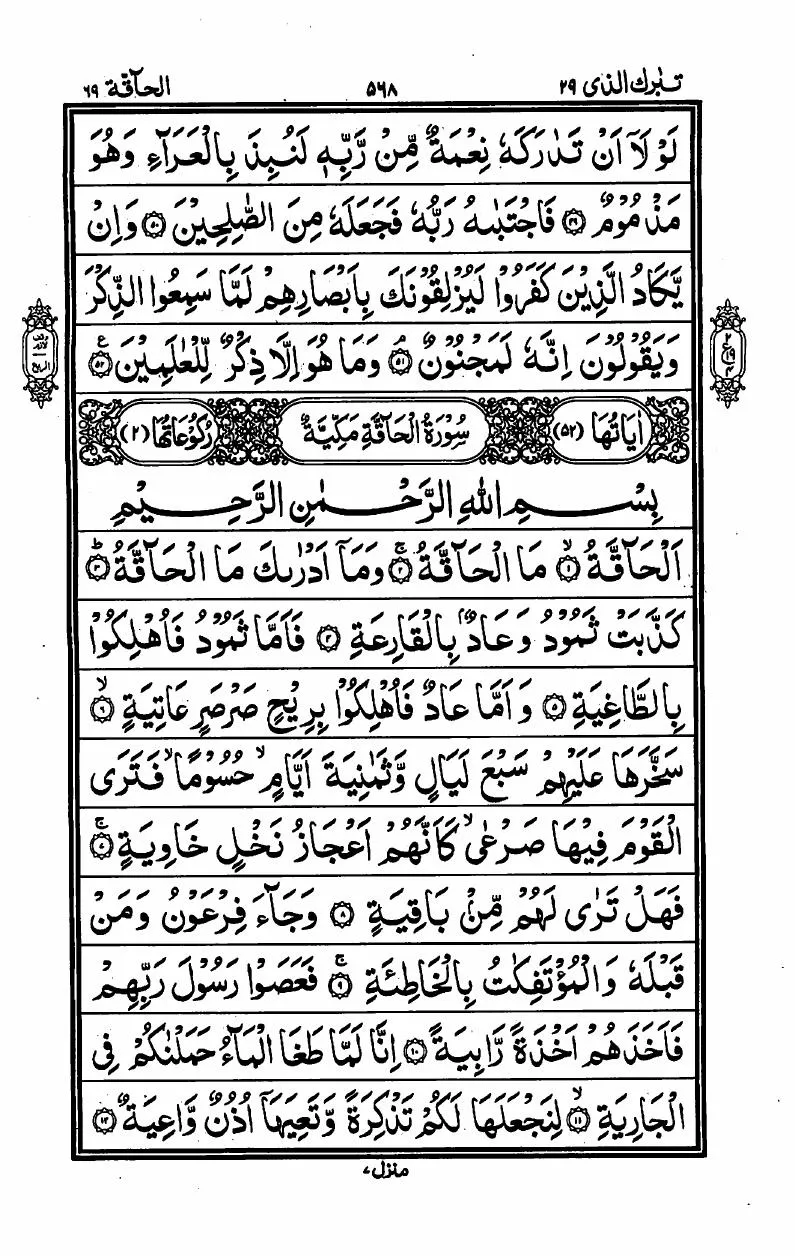 تبٰرك الذی ٢٩
٥٦٨
الحآقّة ٦٩
لَوْ لَاۤ اَنْ تَدٰرَكَهٗ نِعْمَةٌ مِّنْ رَّبِّهٖ لَنُبِذَ بِالْعَرَآءِ وَهُوَ
مَذْمُوْمٌ ۝٤٩ فَاجْتَبٰىهُ رَبُّهٗ فَجَعَلَهٗ مِنَ الصّٰلِحِيْنَ ۝٥٠ وَاِنْ
يَّكَادُ الَّذِيْنَ كَفَرُوْا لَيُزْلِقُوْنَكَ بِاَبْصَارِهِمْ لَمَّا سَمِعُوا الذِّكْرَ
وَيَقُوْلُوْنَ اِنَّهٗ لَمَجْنُوْنٌ ۘ‏ ۝٥١ وَمَا هُوَ اِلَّا ذِكْرٌ لِّلْعٰلَمِيْنَ ۝٥٢ ع
ع ٢ ١٩ ٤
اٰيَاتُهَا (٥٢)
سُوْرَةُ الْحَآقَّةِ مَكِّيَّةٌ
رُكُوْعَاتُهَا (٢)
بِسْمِ اللهِ الرَّحْمٰنِ الرَّحِيْمِ
اَلْحَآقَّةُ ۙ ۝١ مَا الْحَآقَّةُ ۚ ۝٢ وَمَاۤ اَدْرٰىكَ مَا الْحَآقَّةُ ؕ ۝٣
كَذَّبَتْ ثَمُوْدُ وَعَادٌۢ بِالْقَارِعَةِ ۝٤ فَاَمَّا ثَمُوْدُ فَاُهْلِكُوْا
بِالطَّاغِيَةِ ۝٥ وَاَمَّا عَادٌ فَاُهْلِكُوْا بِرِيْحٍ صَرْصَرٍ عَاتِيَةٍ ۙ ۝٦
سَخَّرَهَا عَلَيْهِمْ سَبْعَ لَيَالٍ وَّثَمٰنِيَةَ اَيَّامٍ ۙ حُسُوْمًا ۙ فَتَرَى
الْقَوْمَ فِيْهَا صَرْعٰى ۙ كَاَنَّهُمْ اَعْجَازُ نَخْلٍ خَاوِيَةٍ ۚ ۝٧
فَهَلْ تَرٰى لَهُمْ مِّنْۢ بَاقِيَةٍ ۝٨ وَجَآءَ فِرْعَوْنُ وَمَنْ
قَبْلَهٗ وَالْمُؤْتَفِكٰتُ بِالْخَاطِئَةِ ۚ ۝٩ فَعَصَوْا رَسُوْلَ رَبِّهِمْ
فَاَخَذَهُمْ اَخْذَةً رَّابِيَةً ۝١٠ اِنَّا لَمَّا طَغَا الْمَآءُ حَمَلْنٰكُمْ فِى
الْجَارِيَةِ ۙ ۝١١ لِنَجْعَلَهَا لَكُمْ تَذْكِرَةً وَّتَعِيَهَاۤ اُذُنٌ وَّاعِيَةٌ ۝١٢
منزل ٧